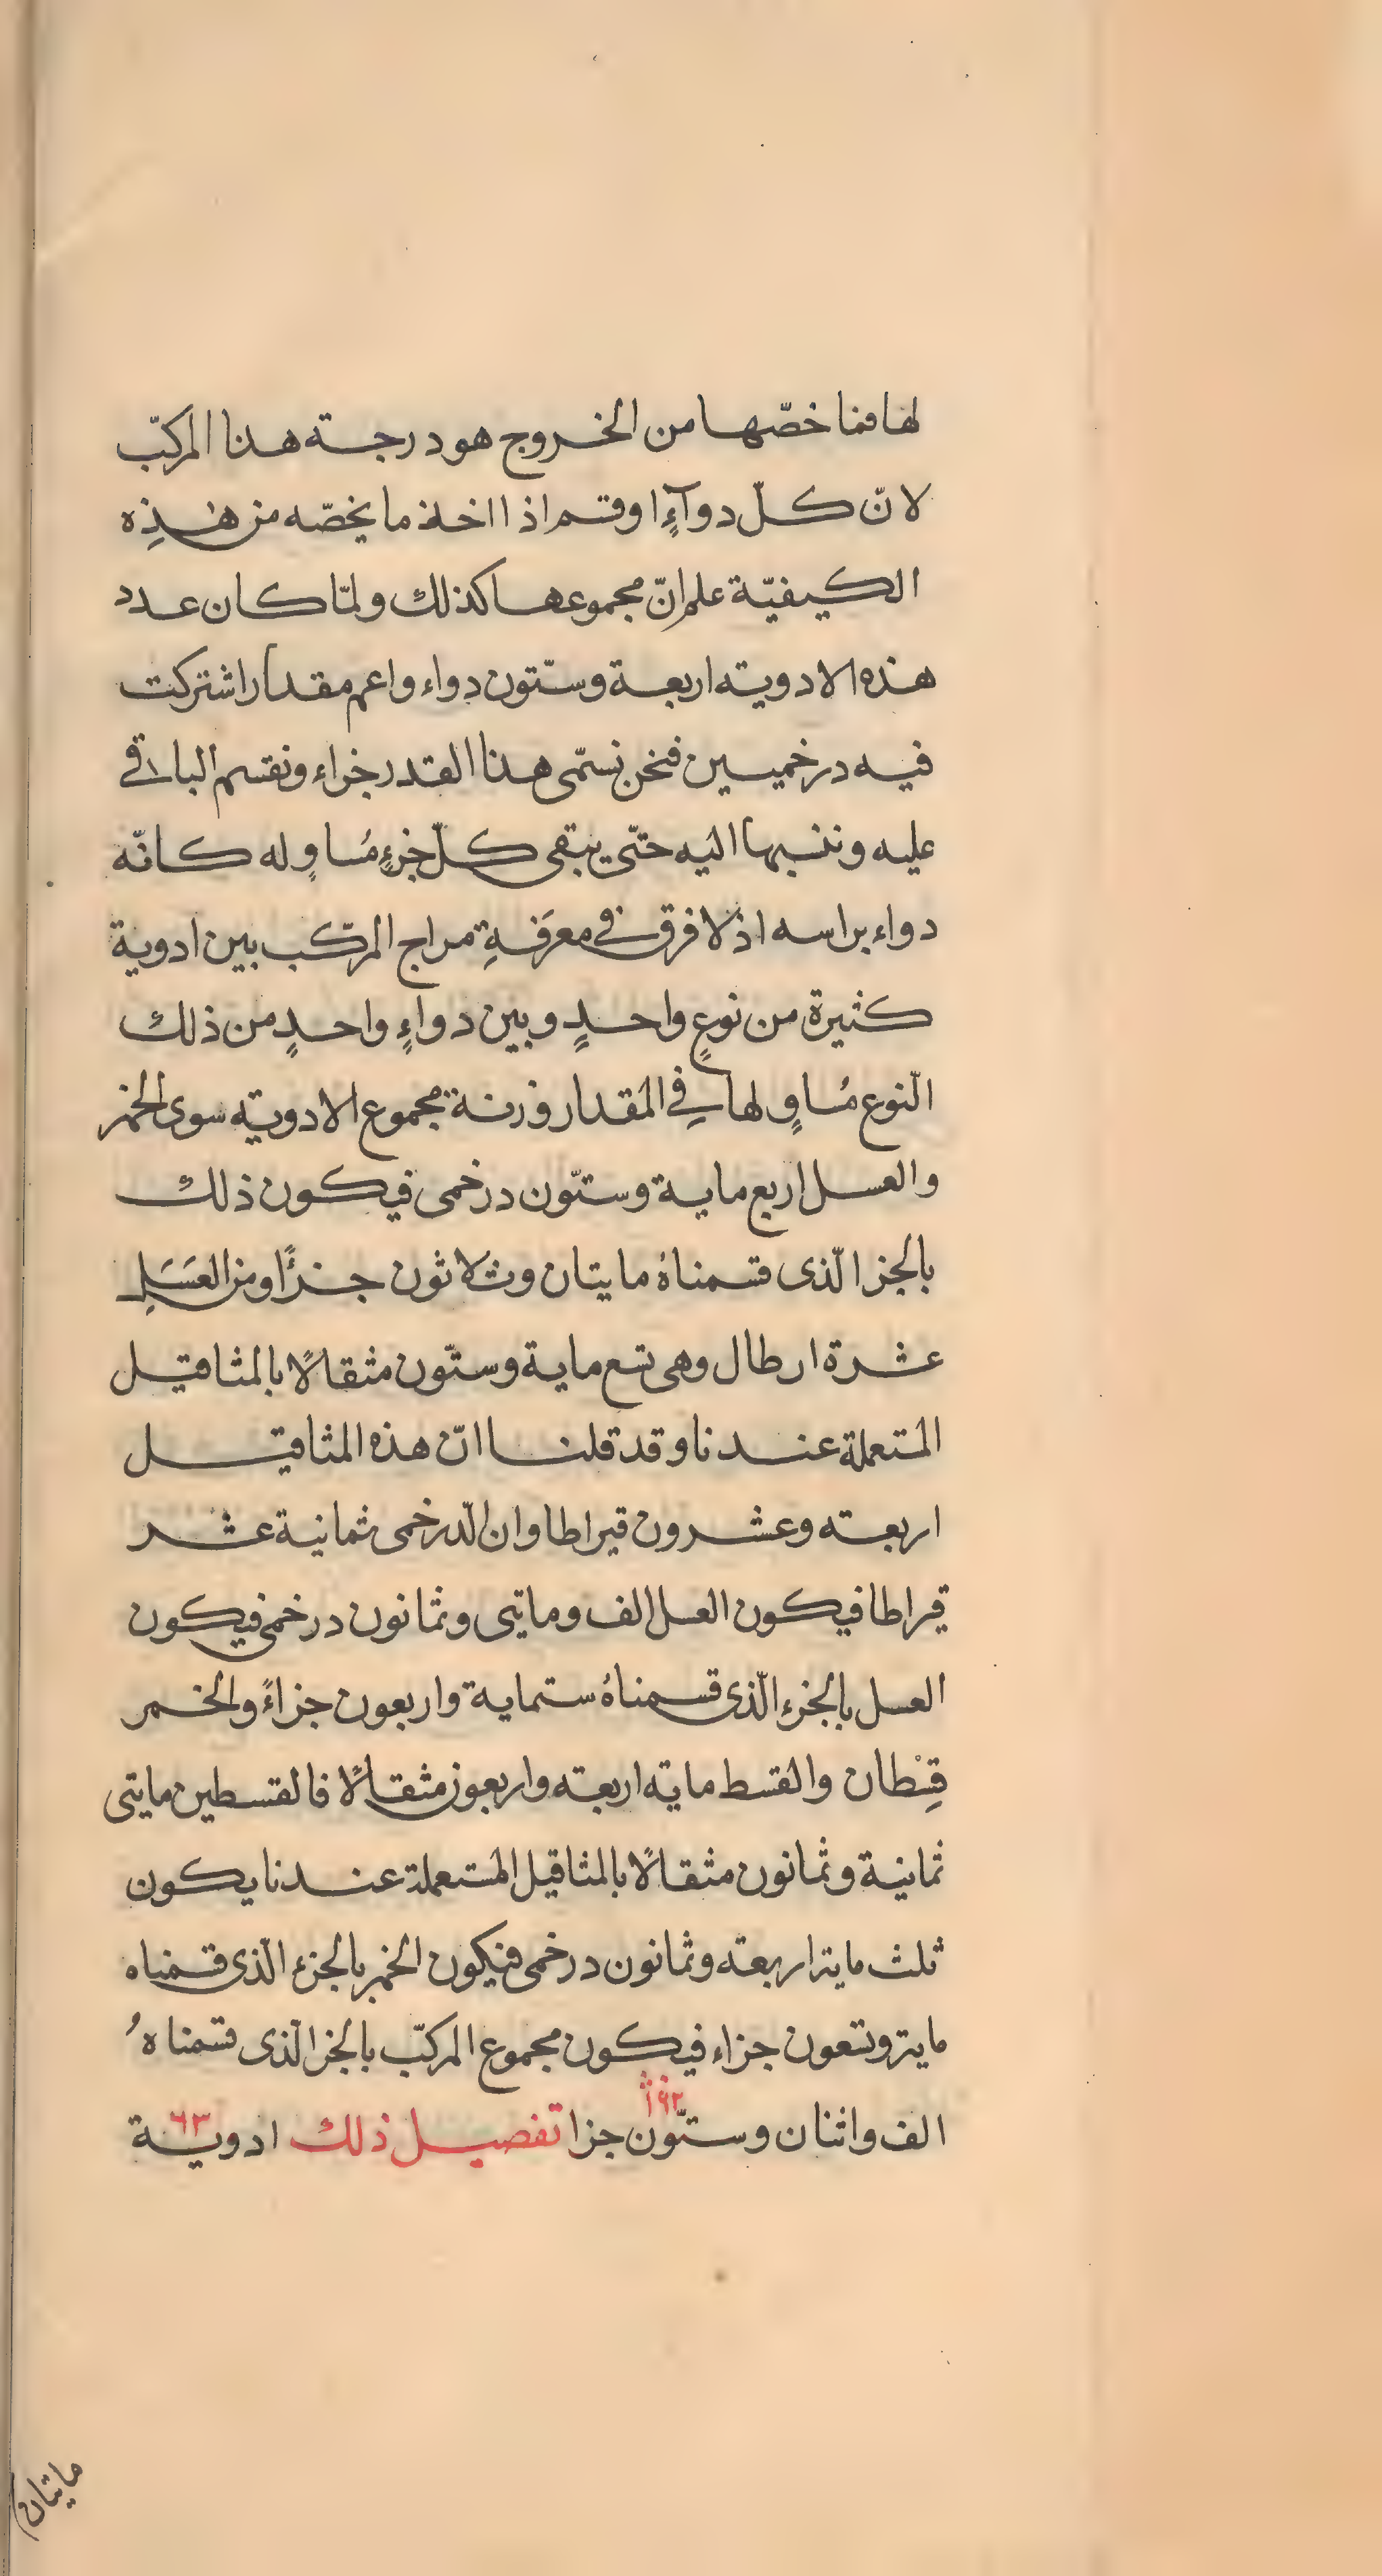 لها فما خصّها من الخروج هو درجة هذا المركّب
لانّ كلّ دوآءٍ اوقسم اذا اخذ ما يخصّه من هٰذِه
الكيفيّة علم انّ مجموعها كذلك ولمّا كان عدد
هذه الادوية اربعة وستّون دواء واعم مقدار اشتركت
فيه درخميين فنحن نسمّى هذا القدر جزاء ونقسم الباقى
عليه وننسبها اليه حتّى يبقى كلّ جزءٍ مُساوٍ له كانّه
دواء براسه اذ لا فرق فى معرَفةِ مزاج المركّب بين ادوية
كثيرة من نوعٍ واحدٍ وبين دواءٍ واحدٍ من ذلك
النّوع مُساوٍ لها فِى المقدار وزنة مجموع الادوية سوى الخمر
والعسل اربع ماية وستّون درخمى فيكون ذلك
بالجز الّذى قسمناهُ مايتان وثلاثون جزءًا ومن العَسَلِ
عشرة ارطال وهى تسع ماية وستّون مثقالًا بالمثاقيل
المتعملة عندنا وقد قلنا انّ هذه المثاقيل
اربعة وعشرون قيراطا وان الدّرخمى ثمانية عشر
قيراطا فيكون العسل الف وماتى وثمانون درخمى فيكون
العسل بالجزء الّذى قسمناهُ ستماية واربعون جزاءً والخمر
قِسْطان والقسط ماية اربعة واربعون مثقالًا فالقسطين مايتى
ثمانية وثمانون مثقالًا بالمثاقيل المستعملة عندنا يكون
ثلث ماية اربعة وثمانون درخمى فيكون الخمر بالجزء الّذى قسمناه
ماية وتسعون جزاء فيكون مجموع المركّب بالجز الّذى قسمناهُ
الف واثنان وستّون جزا تفصيل ذلك ادوية
٦٣
مايتان